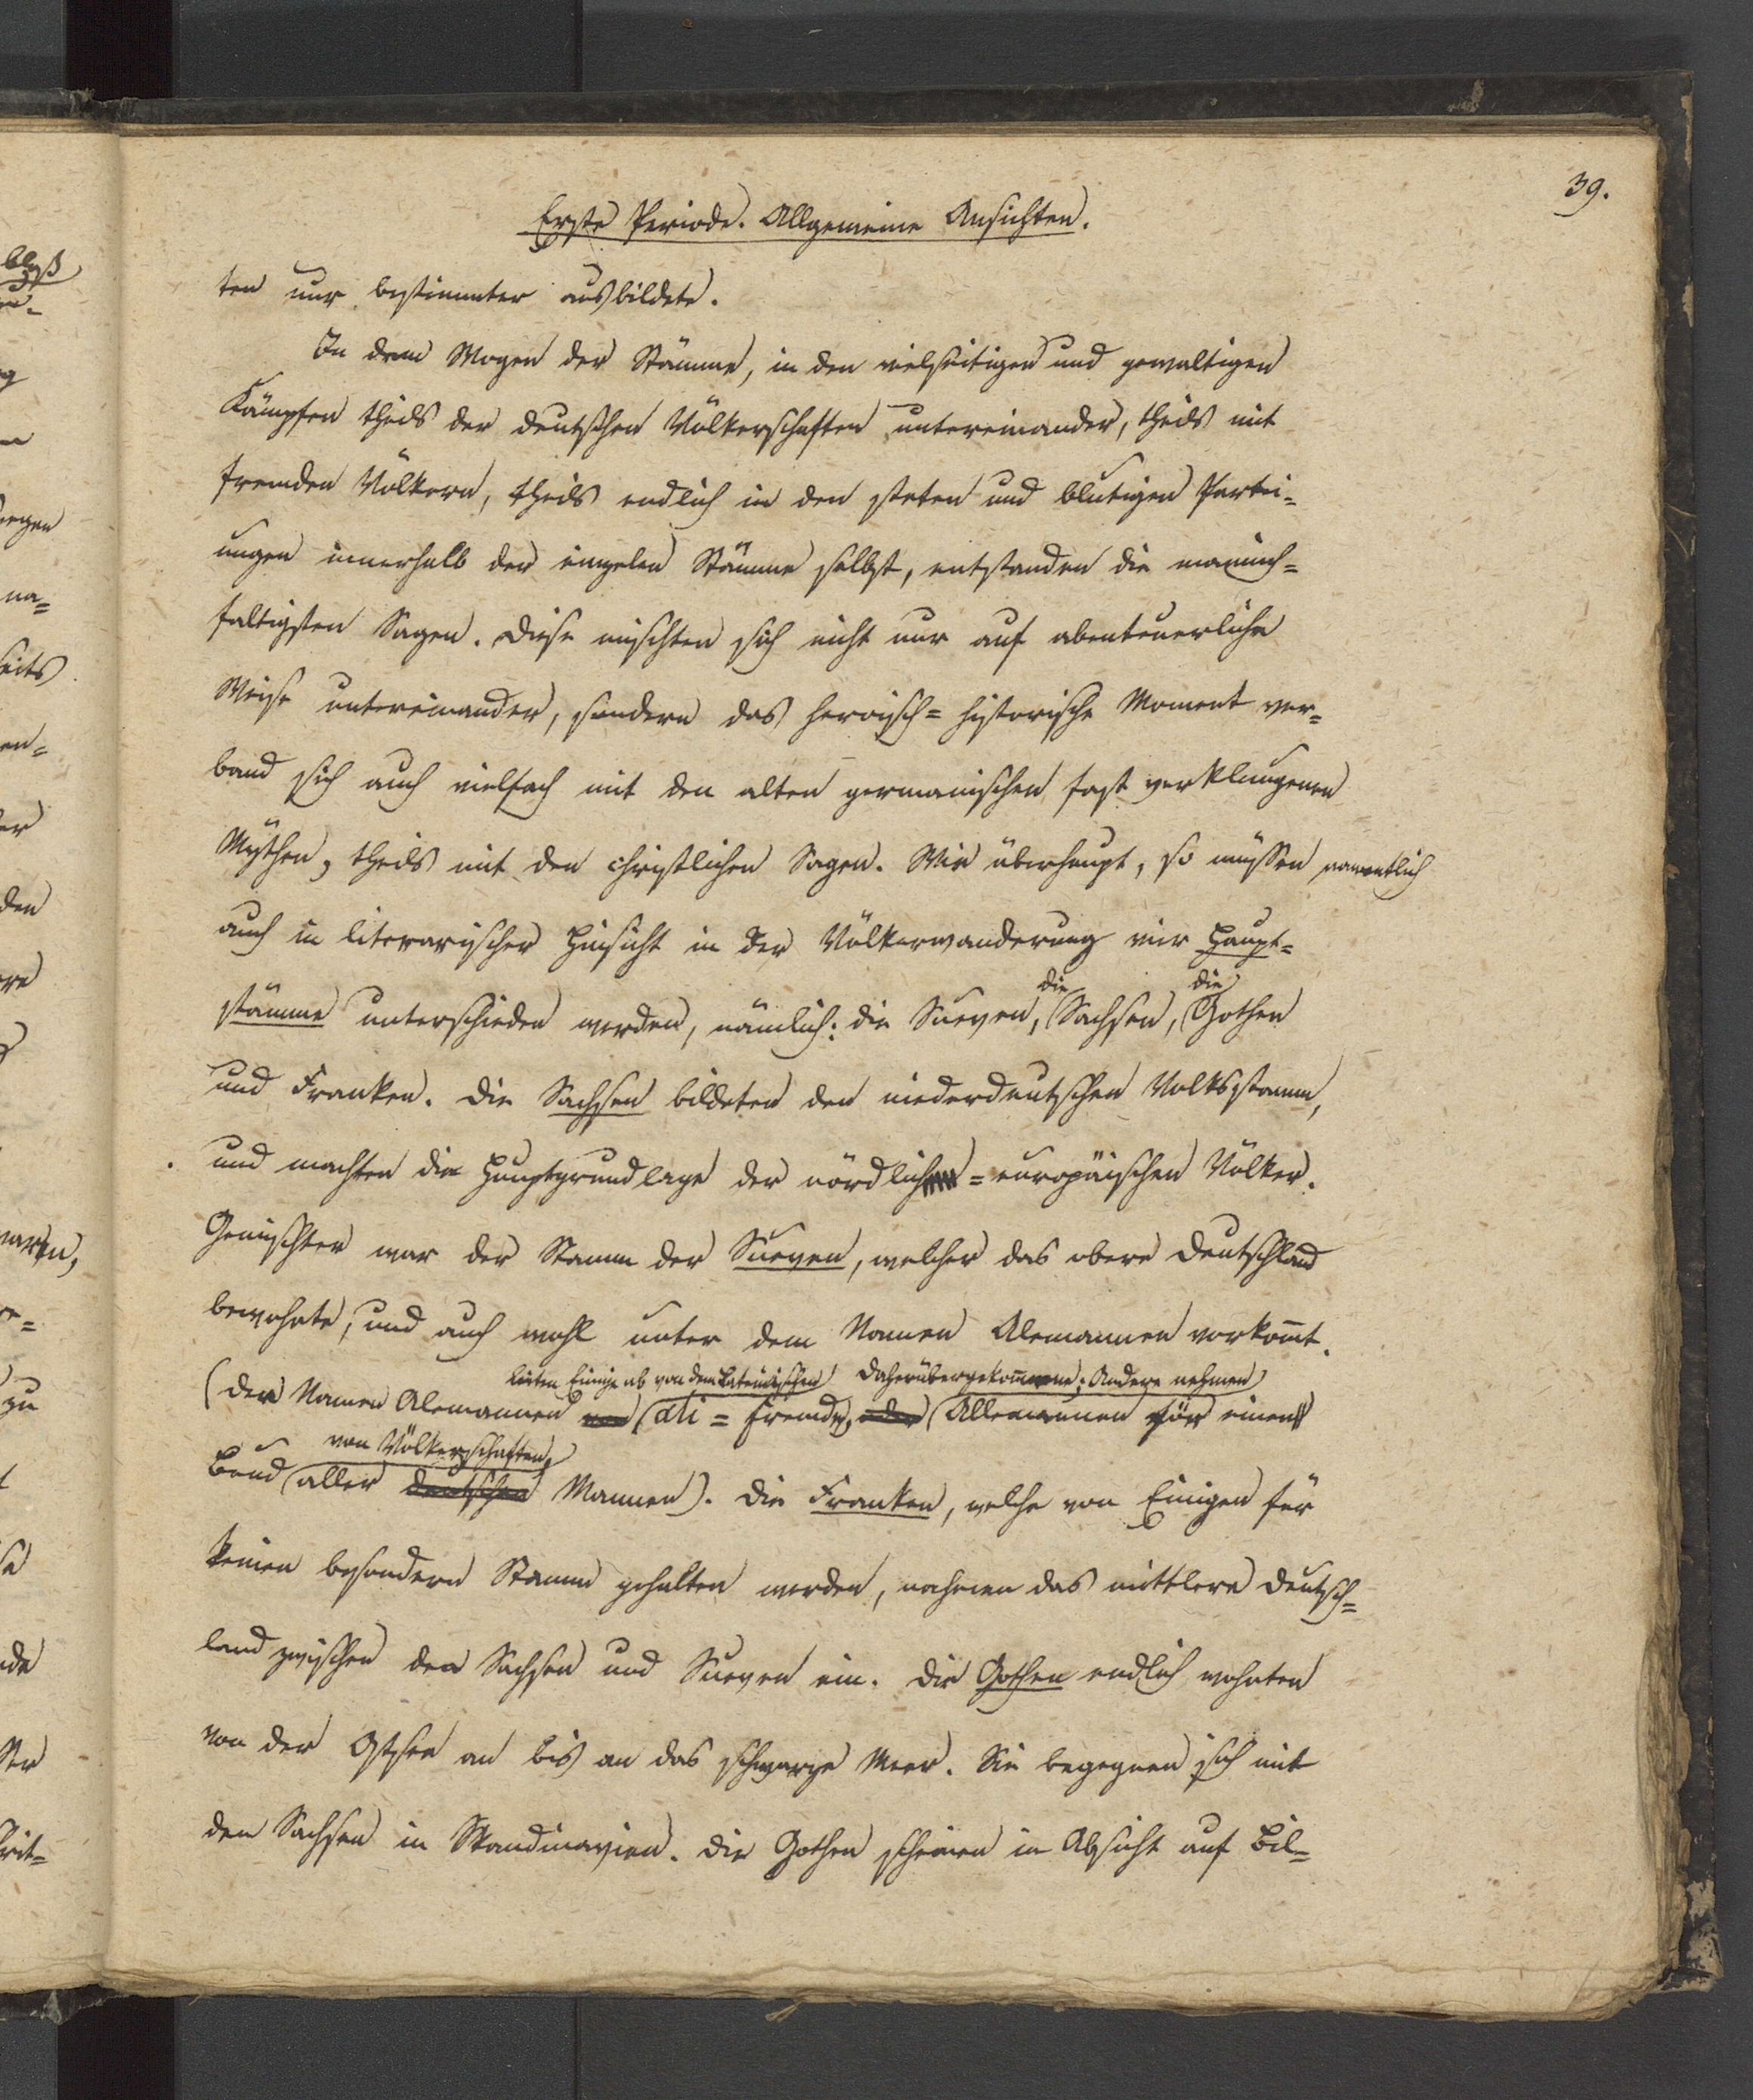 39.
Erste Periode. Allgemeine Ansichten.
ten nur bestimmter ausbildete.
In dem Wogen der Stämme, in den vielseitigen und gewaltigen
Kämpfen theils der deutschen Völkerschaften untereinander, theils mit
fremden Völkern, theils endlich in den steten und blutigen Partei=
ungen innerhalb der einzelen Stämme selbst, entstanden die mannich=
faltigsten Sagen. Diese mischten sich nicht nur auf abenteuerliche
Weise untereinander, sondern das heroisch=historische Moment ver=
band sich auch vielfach mit den alten germanischen fast verklungenen
Mythen, theils mit den christlichen Sagen. Wie überhaupt, so müssen namentlich
auch in literarischer Hinsicht in der Völkerwanderung vier Haupt=
stämme unterschieden werden, nämlich: die Sueven, die Sachsen, die Gothen
und Franken. Die Sachsen bildeten den niederdeutschen Volksstamm,
und machten die Hauptgrundlage der nördlich=europäischen Völker.
Gemischter war der Stamm der Sueven, welcher das obere Deutschland
bewohnte, und auch wohl unter dem Namen Alemannen vorkommt.
leiten Einige ab von dem Lateinischen Daherübergekommene; Andere nehmen
(Den Namen Alemannen ali = Fremde, oder Allemannen für einen
von Völkerschaften,
Bund aller deutschen Mannen). Die Franken, welche von Einigen für
keinen besondern Stamm gehalten werden, nahmen das mittlere Deutsch=
land zwischen den Sachsen und Sueven ein. Die Gothen endlich wohnten
von der Ostsee an bis an das schwarze Meer. Sie begegnen sich mit
den Sachsen in Skandinavien. Die Gothen scheinen in Absicht auf Bil=